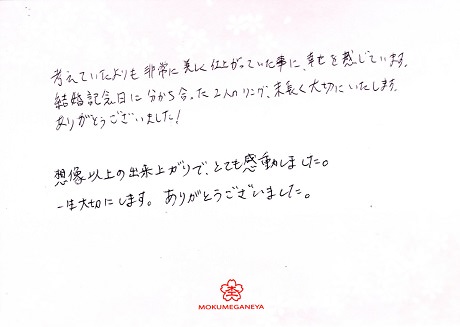 考えていたよりも非常に美しく仕上がっていた事に、幸せを感じています。
結婚記念日に分かち合った2人のリング、末長く大切にいたします。
ありがとうございました!
想像以上の出来上がりで、とても感動しました。
一生大切にします。ありがとうございました。
MOKUMEGANEYA